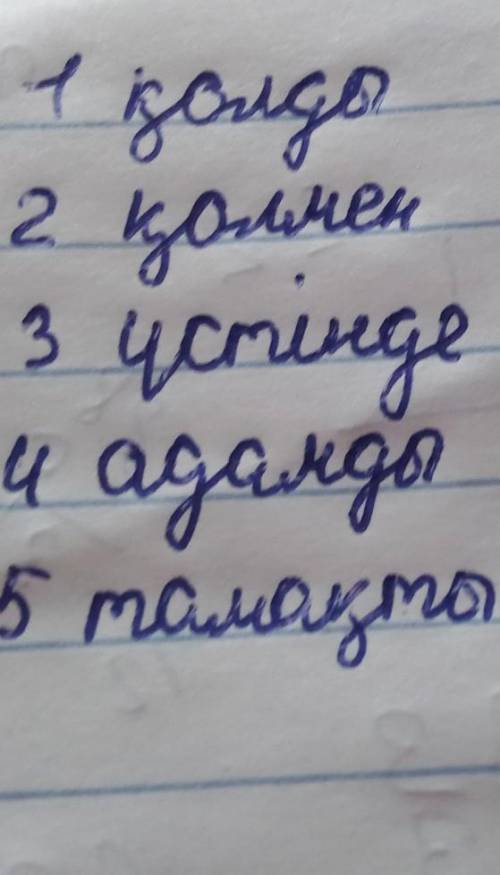 1 қолды
2 қолмен
3 үстінде
4 адамды
5 тамақты